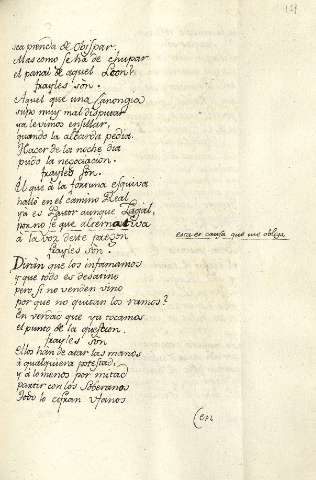 sea prenda de Obispar.
Mas como se ha de chupar
el panal de aquel Leon?
frayles son.
Aquel que una Canongia
supo muy mal disputar
ya le vimos ensillar,
quando la albarda pedia.
Hacer de la noche dia
pudo la negociacion.
frayles son.
El que à la fortuna esquiva
hallò en el camino Real
ya es Pastor aunque Zagal,
por no sè que alternativa
esta es causa que me obliga
à la voz deste pregon
frayles son.
Diràn que los infamamos
y que todo es desatino
pero si no venden vino
por que no quitan los ramos?
En verdad que ya tocamos
el punto de la question.
frayles son
Ellos han de atar las manos
à qualquiera potestad,
y à lo menos por mitad
partir con los Soberanos
todo lo cifran vfanos